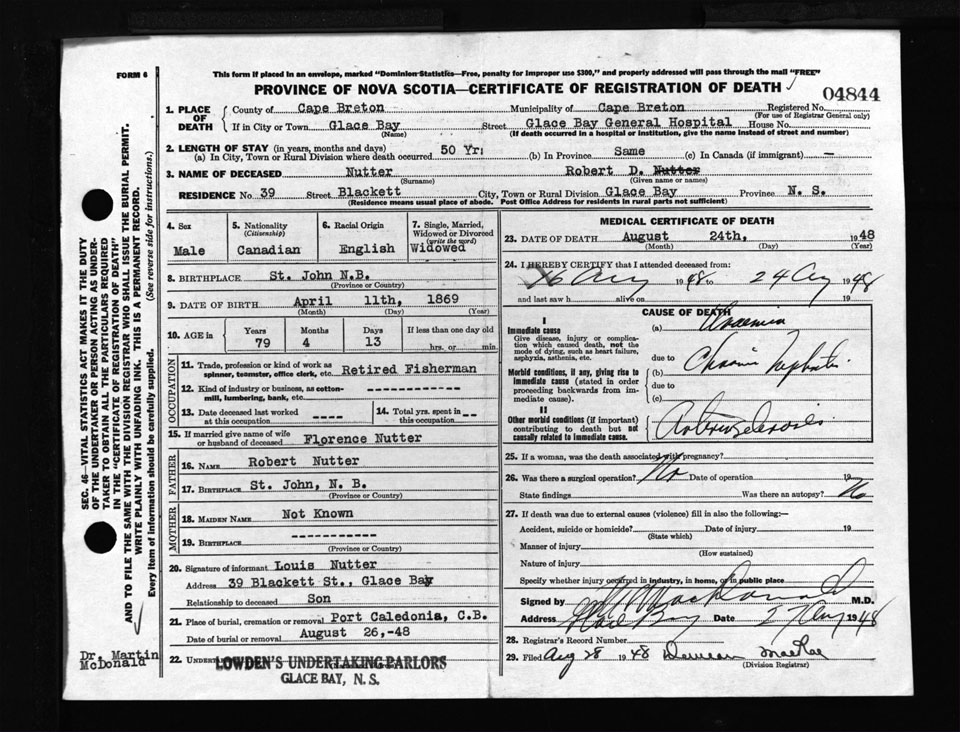 FORM 6
This form if placed in an envelope, marked "Dominion Statistics—Free, penalty for improper use $300," and properly addressed will pass through the mail "FREE"
PROVINCE OF NOVA SCOTIA—CERTIFICATE OF REGISTRATION OF DEATH
04844
1. PLACE OF DEATH County of Cape Breton Municipality of Cape Breton Registered No.
(For use of Registrar General only)
If in City or Town Glace Bay Street Glace Bay General Hospital House No.
(Name) (If death occurred in a hospital or institution, give the name instead of street and number)
2. LENGTH OF STAY (in years, months and days)
(a) In City, Town or Rural Division where death occurred 50 Yr: (b) In Province Same (c) In Canada (if immigrant) —
3. NAME OF DECEASED Nutter Robert D. Nutter
(Surname) (Given name or names)
RESIDENCE No. 39 Street Blackett City, Town or Rural Division Glace Bay Province N. S.
(Residence means usual place of abode. Post Office Address for residents in rural parts not sufficient)
4. Sex Male
5. Nationality (Citizenship) Canadian
6. Racial Origin English
7. Single, Married, Widowed or Divorced (write the word) Widowed
8. BIRTHPLACE St. John N.B.
(Province or Country)
9. DATE OF BIRTH April 11th, 1869
(Month) (Day) (Year)
10. AGE in Years Months Days If less than one day old
79 4 13 hrs. or min.
OCCUPATION
11. Trade, profession or kind of work as spinner, teamster, office clerk, etc. Retired Fisherman
12. Kind of industry or business, as cotton-mill, lumbering, bank, etc. -------------
13. Date deceased last worked at this occupation ----
14. Total yrs. spent in this occupation --
15. If married give name of wife or husband of deceased Florence Nutter
FATHER
16. NAME Robert Nutter
17. BIRTHPLACE St. John, N. B.
(Province or Country)
MOTHER
18. MAIDEN NAME Not Known
19. BIRTHPLACE -----------
(Province or Country)
20. Signature of informant Louis Nutter
Address 39 Blackett St., Glace Bay
Relationship to deceased Son
21. Place of burial, cremation or removal Port Caledonia, C.B.
Date of burial or removal August 26,-48
22. LOWDEN'S UNDERTAKING PARLORS
GLACE BAY, N. S.
MEDICAL CERTIFICATE OF DEATH
23. DATE OF DEATH August 24th, 1948
(Month) (Day) (Year)
24. I HEREBY CERTIFY that I attended deceased from:
16 Aug 1948 to 24 Aug 1948
and last saw h alive on 19
CAUSE OF DEATH
I
Immediate cause
Give disease, injury or complication which caused death, not the mode of dying, such as heart failure, asphyxia, asthenia, etc.
(a) Uraemia
due to
Morbid conditions, if any, giving rise to immediate cause (stated in order proceeding backwards from immediate cause).
(b) Chronic Nephritis
due to
(c)
II
Other morbid conditions (if important) contributing to death but not causally related to immediate cause.
Arteriosclerosis
25. If a woman, was the death associated with pregnancy?
26. Was there a surgical operation? No Date of operation 19
State findings Was there an autopsy? No
27. If death was due to external causes (violence) fill in also the following:—
Accident, suicide or homicide? Date of injury 19
(State which)
Manner of injury
(How sustained)
Nature of injury
Specify whether injury occurred in industry, in home, or in public place
Signed by MacDonald M.D.
Address Glace Bay Date 27 Aug 1948
28. Registrar's Record Number
29. Filed Aug 28 1948 Duncan MacRae
(Division Registrar)
SEC. 46—VITAL STATISTICS ACT MAKES IT THE DUTY
OF THE UNDERTAKER OR PERSON ACTING AS UNDER-
TAKER TO OBTAIN ALL THE PARTICULARS REQUIRED
IN THE "CERTIFICATE OF REGISTRATION OF DEATH"
AND TO FILE THE SAME WITH THE DIVISION REGISTRAR WHO SHALL ISSUE THE BURIAL PERMIT.
WRITE PLAINLY WITH UNFADING INK. THIS IS A PERMANENT RECORD.
Every item of information should be carefully supplied. (See reverse side for instructions.)
Dr. Martin
McDonald